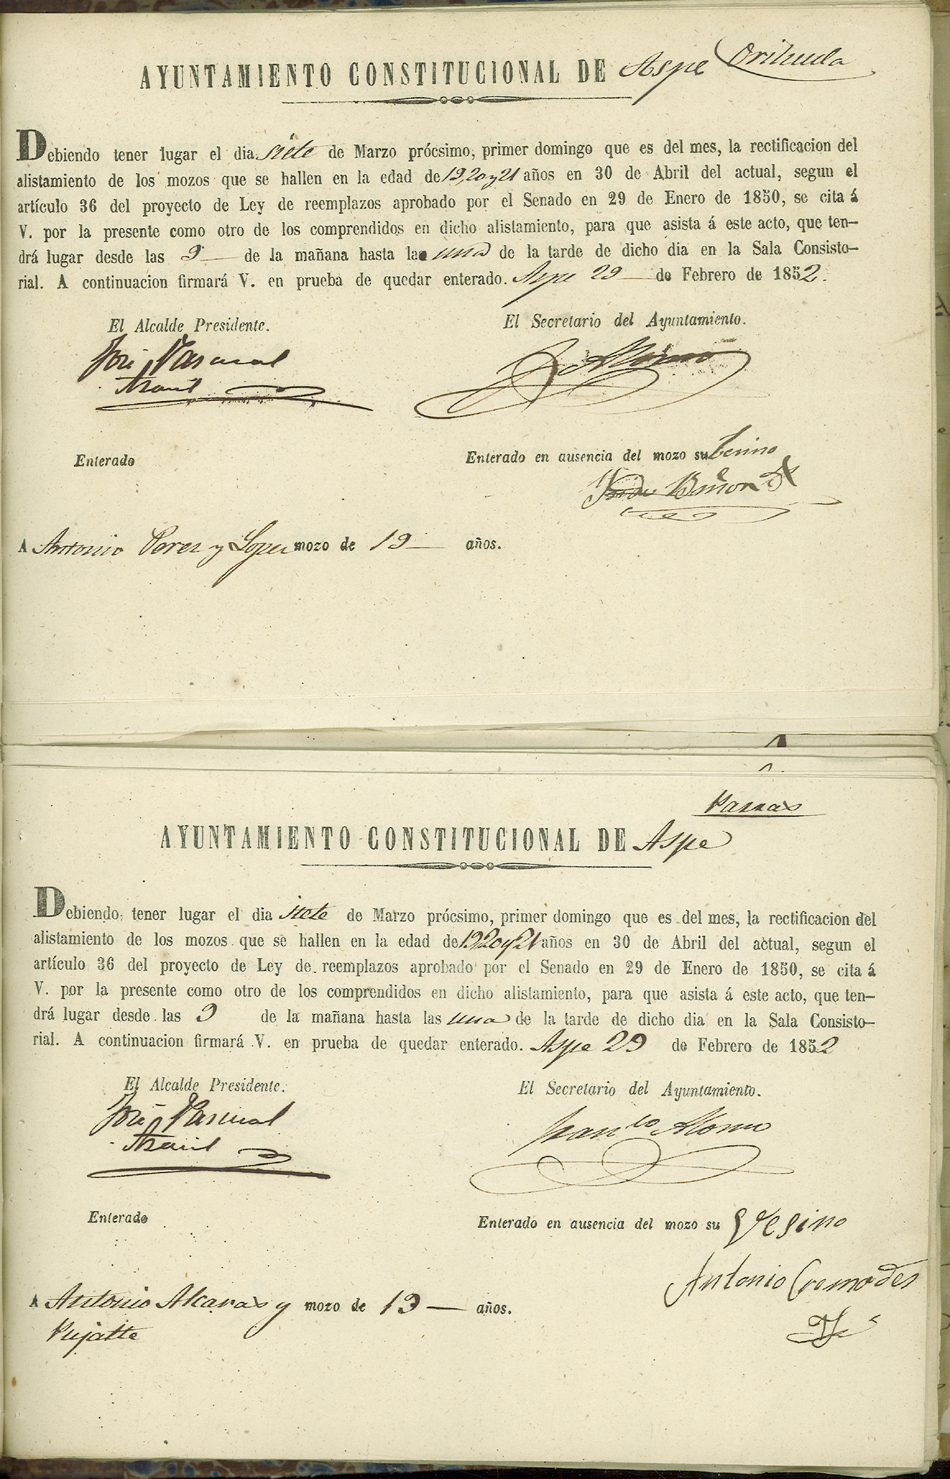 AYUNTAMIENTO CONSTITUCIONAL DE Aspe Orihuela
Debiendo tener lugar el dia siete de Marzo prócsimo, primer domingo que es del mes, la rectificacion del
alistamiento de los mozos que se hallen en la edad de 19, 20 y 21 años en 30 de Abril del actual, segun el
artículo 36 del proyecto de Ley de reemplazos aprobado por el Senado en 29 de Enero de 1850, se cita á
V. por la presente como otro de los comprendidos en dicho alistamiento, para que asista á este acto, que ten—
drá lugar desde las 9 de la mañana hasta las una de la tarde de dicho dia en la Sala Consisto—
rial. A continuacion firmará V. en prueba de quedar enterado. Aspe 29 de Febrero de 1852.
El Alcalde Presidente. El Secretario del Ayuntamiento.
José Pascual Alonso
Enterado Enterado en ausencia del mozo su
A Antonio Perez y Lopez mozo de 19 años.
AYUNTAMIENTO CONSTITUCIONAL DE Aspe
Debiendo tener lugar el dia siete de Marzo prócsimo, primer domingo que es del mes, la rectificacion del
alistamiento de los mozos que se hallen en la edad de 19 20 y 21 años en 30 de Abril del actual, segun el
artículo 36 del proyecto de Ley de reemplazos aprobado por el Senado en 29 de Enero de 1850, se cita á
V. por la presente como otro de los comprendidos en dicho alistamiento, para que asista á este acto, que ten—
drá lugar desde las 9 de la mañana hasta las una de la tarde de dicho dia en la Sala Consisto—
rial. A continuacion firmará V. en prueba de quedar enterado. Aspe 29 de Febrero de 1852
El Alcalde Presidente. El Secretario del Ayuntamiento.
José Pascual Franco Alonso
Enterado Enterado en ausencia del mozo su Vesino
Antonio Cremades
A Antonio Alcaraz y mozo de 19 años.
Pujalte